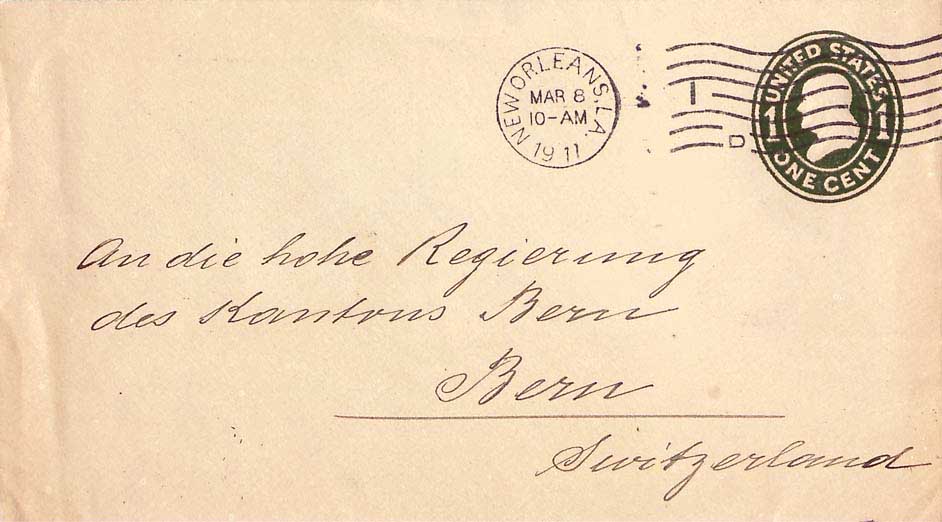 NEW ORLEANS, LA.
MAR 8
10-AM
1911
I
D
UNITED STATES
1 1
ONE CENT
An die hohe Regierung
des Kantons Bern
Bern
Switzerland